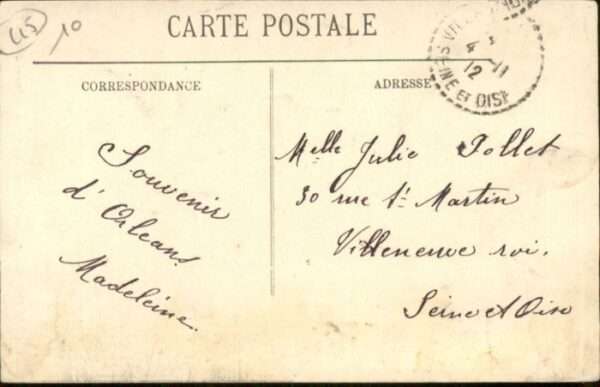 CARTE POSTALE
45
10
CORRESPONDANCE
ADRESSE
4 -11
12
SEINE ET OISE
Souvenir
d'Orléans
Madeleine.
Melle Julie Jollet
30 rue St Martin
Villeneuve roi.
Seine et Oise